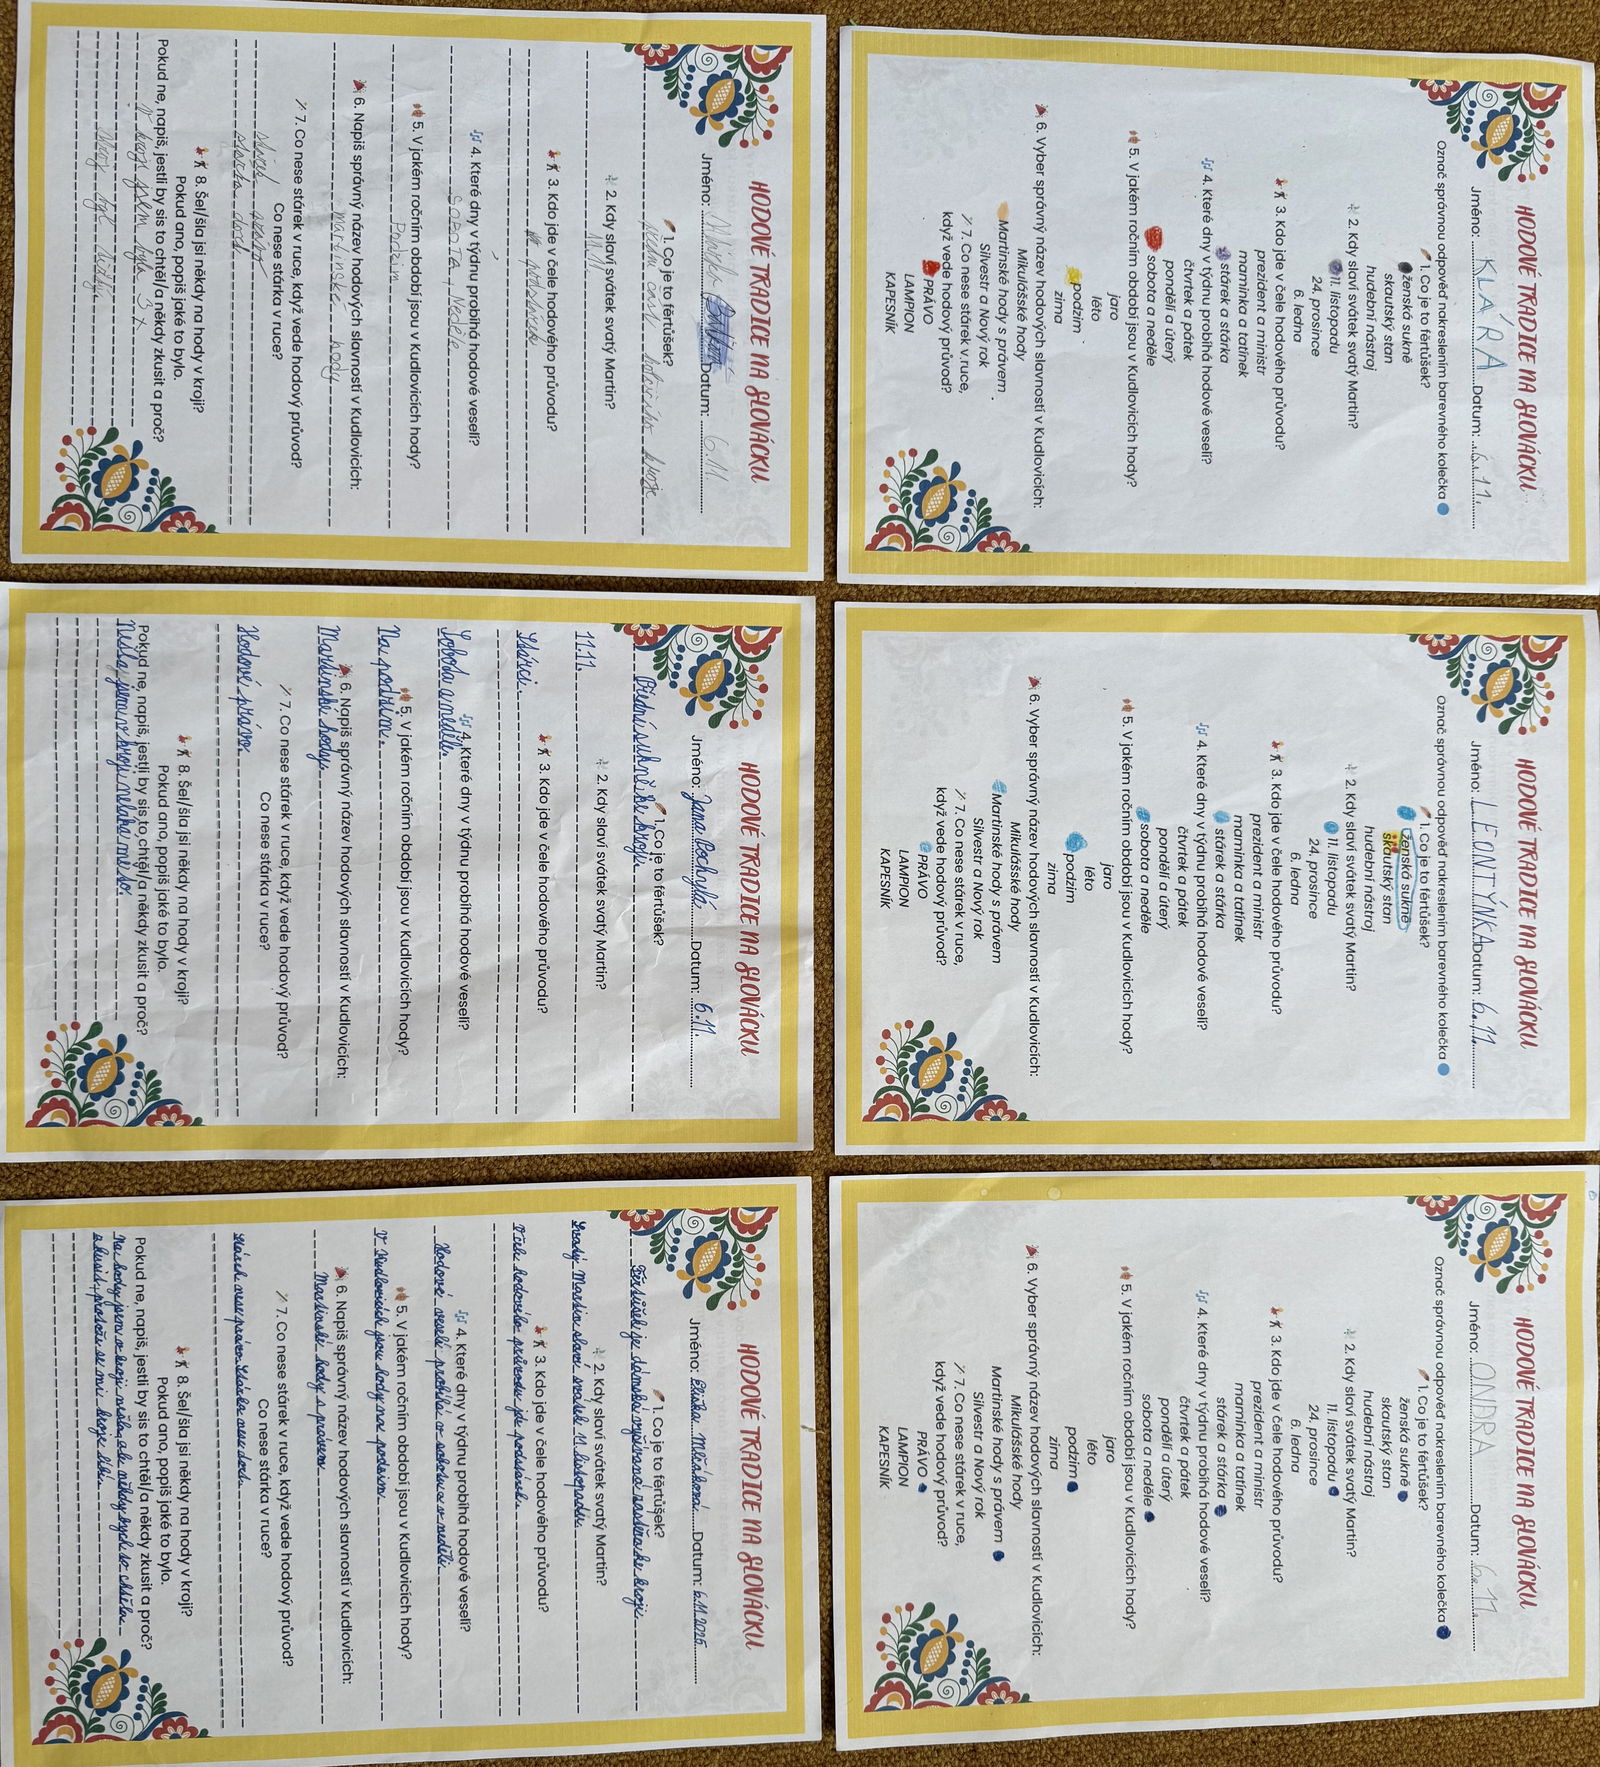 HODOVÉ TRADICE NA SLOVÁCKU
Jméno: KLÁRA Datum: 6.11.
Označ správnou odpověď nakreslením barevného kolečka
1. Co je to fěrtůšek?
ženská sukně
skautský stan
hudební nástroj
2. Kdy slaví svátek svatý Martin?
11. listopadu
24. prosince
6. ledna
3. Kdo jde v čele hodového průvodu?
prezident a ministr
maminka a tatínek
stárek a stárka
4. Které dny v týdnu probíhá hodové veselí?
čtvrtek a pátek
pondělí a úterý
sobota a neděle
5. V jakém ročním období jsou v Kudlovicích hody?
jaro
léto
podzim
zima
6. Vyber správný název hodových slavností v Kudlovicích:
Mikulášské hody
Martinské hody s právem
Silvestr a Nový rok
7. Co nese stárek v ruce,
když vede hodový průvod?
PRÁVO
LAMPION
KAPESNÍK
HODOVÉ TRADICE NA SLOVÁCKU
Jméno: LEONTÝNKA Datum: 6.11.
Označ správnou odpověď nakreslením barevného kolečka
1. Co je to fěrtůšek?
ženská sukně
skautský stan
hudební nástroj
2. Kdy slaví svátek svatý Martin?
11. listopadu
24. prosince
6. ledna
3. Kdo jde v čele hodového průvodu?
prezident a ministr
maminka a tatínek
stárek a stárka
4. Které dny v týdnu probíhá hodové veselí?
čtvrtek a pátek
pondělí a úterý
sobota a neděle
5. V jakém ročním období jsou v Kudlovicích hody?
jaro
léto
podzim
zima
6. Vyber správný název hodových slavností v Kudlovicích:
Mikulášské hody
Martinské hody s právem
Silvestr a Nový rok
7. Co nese stárek v ruce,
když vede hodový průvod?
PRÁVO
LAMPION
KAPESNÍK
HODOVÉ TRADICE NA SLOVÁCKU
Jméno: ONDRA Datum: 6.11.
Označ správnou odpověď nakreslením barevného kolečka
1. Co je to fěrtůšek?
ženská sukně
skautský stan
hudební nástroj
2. Kdy slaví svátek svatý Martin?
11. listopadu
24. prosince
6. ledna
3. Kdo jde v čele hodového průvodu?
prezident a ministr
maminka a tatínek
stárek a stárka
4. Které dny v týdnu probíhá hodové veselí?
čtvrtek a pátek
pondělí a úterý
sobota a neděle
5. V jakém ročním období jsou v Kudlovicích hody?
jaro
léto
podzim
zima
6. Vyber správný název hodových slavností v Kudlovicích:
Mikulášské hody
Martinské hody s právem
Silvestr a Nový rok
7. Co nese stárek v ruce,
když vede hodový průvod?
PRÁVO
LAMPION
KAPESNÍK
HODOVÉ TRADICE NA SLOVÁCKU
Jméno: Datum: 6.11.
1. Co je to fěrtůšek?
přední část kroje
2. Kdy slaví svátek svatý Martin?
11.11.
3. Kdo jde v čele hodového průvodu?
4. Které dny v týdnu probíhá hodové veselí?
SOBOTA + Neděle
5. V jakém ročním období jsou v Kudlovicích hody?
Podzim
6. Napiš správný název hodových slavností v Kudlovicích:
martinské hody
7. Co nese stárek v ruce, když vede hodový průvod?
Co nese stárka v ruce?
stárek právo
stárka
8. Šel/šla jsi někdy na hody v kroji?
Pokud ano, popiš jaké to bylo.
Pokud ne, napiš, jestli by sis to chtěl/a někdy zkusit a proč?
V kroji jsem byla 3x
HODOVÉ TRADICE NA SLOVÁCKU
Jméno: Jana Pochylá Datum: 6.11.
1. Co je to fěrtůšek?
Přední sukně ke kroji.
2. Kdy slaví svátek svatý Martin?
11.11.
3. Kdo jde v čele hodového průvodu?
Stárci.
4. Které dny v týdnu probíhá hodové veselí?
Sobota a neděle.
5. V jakém ročním období jsou v Kudlovicích hody?
Na podzim.
6. Napiš správný název hodových slavností v Kudlovicích:
Martinské hody.
7. Co nese stárek v ruce, když vede hodový průvod?
Co nese stárka v ruce?
Hodové právo.
8. Šel/šla jsi někdy na hody v kroji?
Pokud ano, popiš jaké to bylo.
Pokud ne, napiš, jestli by sis to chtěl/a někdy zkusit a proč?
Nešla jsem v kroji neláká mě to.
HODOVÉ TRADICE NA SLOVÁCKU
Jméno: Eliška Datum: 6.11.2025
1. Co je to fěrtůšek?
Fěrtůšek je dámská vyšívaná zástěra ke kroji.
2. Kdy slaví svátek svatý Martin?
Svatý Martin slaví svátek 11. listopadu.
3. Kdo jde v čele hodového průvodu?
V čele hodového průvodu jde
4. Které dny v týdnu probíhá hodové veselí?
Hodové veselí probíhá v sobotu a v neděli.
5. V jakém ročním období jsou v Kudlovicích hody?
V Kudlovicích jsou hody na podzim.
6. Napiš správný název hodových slavností v Kudlovicích:
Martinské hody s právem
7. Co nese stárek v ruce, když vede hodový průvod?
Co nese stárka v ruce?
Stárek nese právo. Stárka nese
8. Šel/šla jsi někdy na hody v kroji?
Pokud ano, popiš jaké to bylo.
Pokud ne, napiš, jestli by sis to chtěl/a někdy zkusit a proč?
Na hody jsem v kroji nešla, ale někdy bych to chtěla
zkusit, protože se mi kroje líbí.